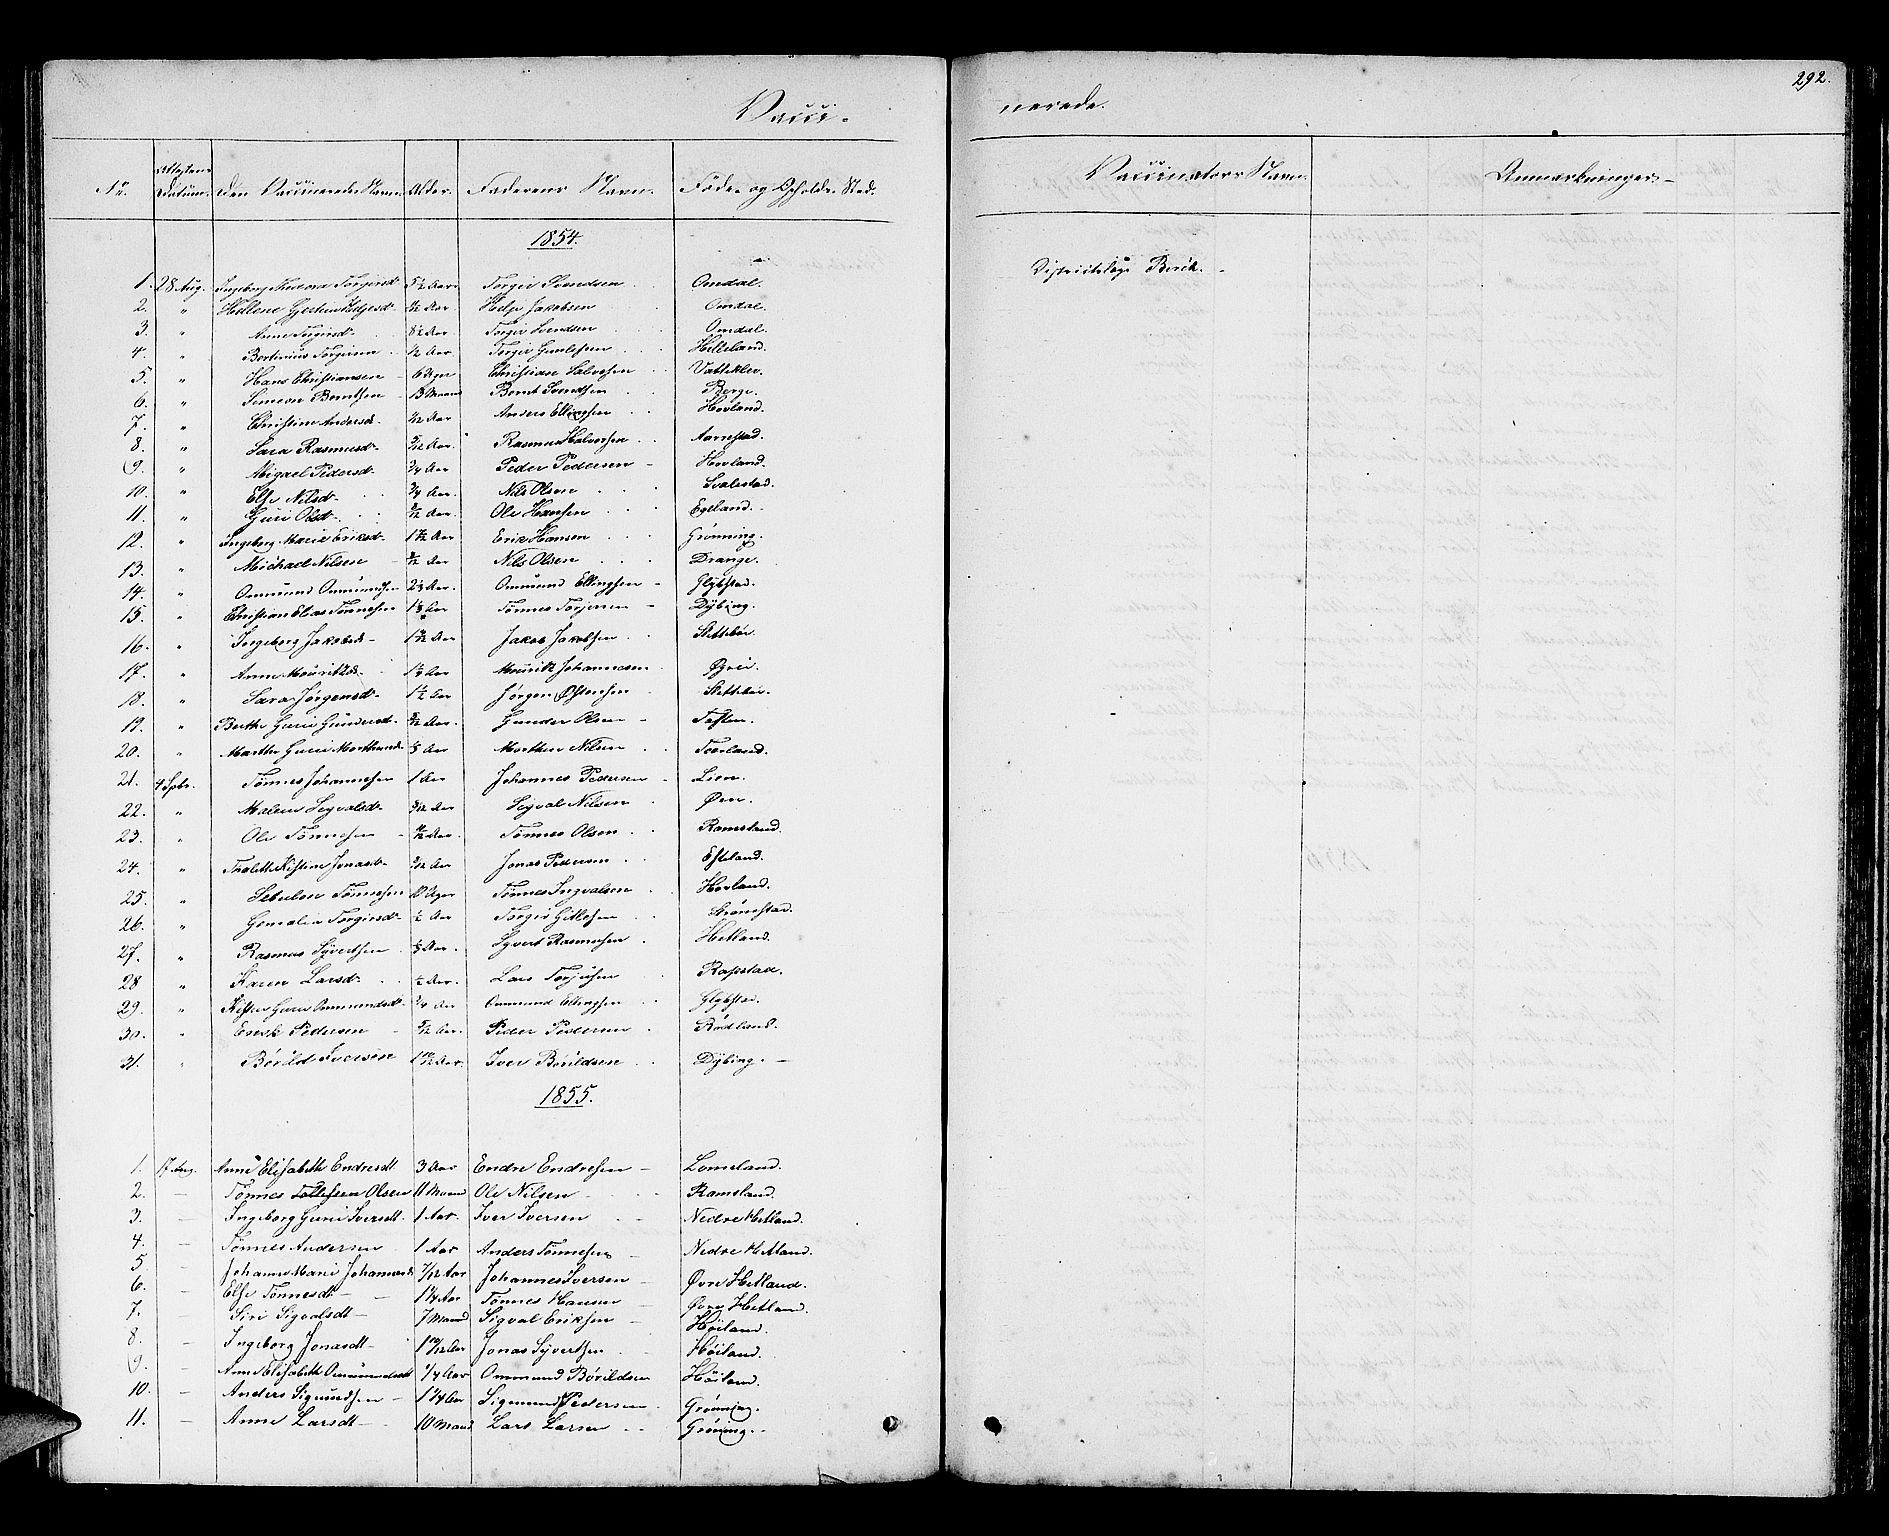 292.
Vacci- nerede.
No. Attestens Datum. Den Vaccineredes Navn. Alder. Faderens Navn. Føde- og Opholds Sted. Vaccinators Navn. Anmærkninger.
1854.
1. 28 Aug. Ingeborg Torgersd. 5 1/2 Aar Torger Svendsen Omdal. Districtslæge Borch.
2. " Hellene Helgesd. Aar Helge Jakobsen Omdal.
3. " Anne Torgersd. Aar Torger Svendsen Omdal.
4. " Bertinius Torgersen 1/2 Aar Torger Gunlefsen Helleland.
5. " Hans Christiansen 6 Uger Christian Salvesen Vatteklev.
6. " Berntsen 13 Maaned Bernt Svendsen Berge.
7. " Christine Andersd. Aar Anders Ellingsen Hovland.
8. " Sara Rasmusd. Aar Rasmus Halversen Aarrestad.
9. " Abigael Pedersd. 3/4 Aar Peder Pedersen Hovland.
10. " Else Nilsd. 3/4 Aar. Nils Olsen Svalestad.
11. " Guri Olsd. Aar. Ole Hansen Egeland.
12. " Ingeborg Marie Eriksd. Aar Erik Hansen Grønning.
13. " Michael Nilsen Aar Nils Olsen Drange.
14. " Ommund Ommundsen Aar. Ommund Ellingsen Glypstad.
15. " Christian Elias Tønnesen Aar Tønnes Torjersen Dybing.
16. " Ingeborg Jakobsd. Aar Jakob Jakobsen Slettebøe.
17. " Anne Mouritzd. Aar Mouritz Johannesen Øgrei.
18. " Sara Jørgensd. 1 1/2 Aar Jørgen Østensen Slettebøe.
19. " Berthe Guri Gundersd. Aar. Gunder Olsen Toften.
20. " Marthe Guri Morthensd. Aar Morthen Nilsen
21. 4 Spbr. Tønnes Johannesen 1 Aar Johannes Pedersen Lien.
22. " Malene Sigvalsd. Aar Sigval Nilsen Øen.
23. " Ole Tønnesen Aar. Tønnes Olsen Ramsland.
24. " Kistine Jonasd. Aar Jonas Pedersen Efteland.
25. " Sebulon Tønnesen 10 Uger Tønnes Ingvalsen Hovland.
26. " Gemalie Torgersd. 1/2 Aar Torger Gitlesen Strømstad.
27. " Rasmus Syvertsen Aar. Syvert Rasmusen Hetland.
28 " Karen Larsd. 1/2 Aar. Lars Torjusen Rapstad.
29. " Guri Ommundsd. 3/4 Aar Ommund Ellingsen Glypstad.
30. " Enok Pedersen Aar. Peder Pedersen Rødland.
31. " Børild Iversen 1 10/12 Aar. Iver Børildsen Dybing.
1855.
1. 17 Aug. Anne Elisabeth Endresdt. 3 Aar Endre Endresen Lomeland.
2. — Tønnes Tollefsen Olsen 11 Maaned Ole Nilsen Ramsland.
3. — Ingeborg Guri Iversdt. 1 Aar. Iver Iversen Nedre Hetland.
4. — Tønnes Andersen 1 Aar Anders Tønnesen Nedre Hetland.
5 — Johanne Marie Johannesdt. 7/12 Aar Johannes Iversen Øvre Hetland.
6. — Else Tønnesdt. 1 1/4 Aar Tønnes Hansen Øvre Hetland.
7. — Siri Sigvalsdt. 7 Maaned Sigval Eriksen Høiland.
8. — Ingeborg Jonasdt. 1 10/12 Aar Jonas Syvertsen Høiland.
9. — Anne Elisabeth Ommundsdt. 1/4 Aar Ommund Børildsen Høiland.
10. — Anders Sigmundsen 1 1/4 Aar Sigmund Pedersen Grønning.
11. — Anne Larsdt. 10 Maaned Lars Larsen Grønning.